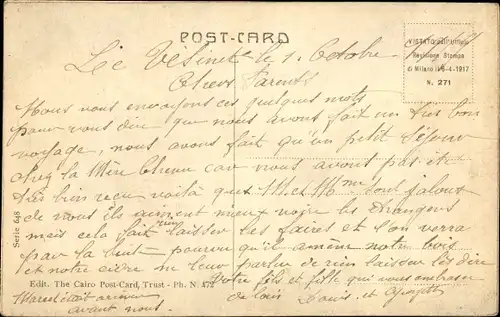 POST-CARD
VISTATO
Revisione Stampa
di Milano 6-4-1917
N. 271
Le Vésinet le 1 Octobre
Chers Parents
Nous vous envoyons ces quelques mots
pour vous dire que nous avons fait un très bon
voyage, nous avons fait qu'un petit séjour
chez la Mère car nous avons pas été
très bien reçu voilà que M. et Mme sont jaloux
de vous ils aiment mieux voir les étrangers
mais cela fait rien laisser les faires et on verra
par la suite pourvu qu'il amène notre bois
et notre cidre ne leur parler de rien laisser les dire
Votre fils et fille qui vous embrasse
de loin Louis et
Marcel était arrivé
avant nous.
Serie 648
Edit. The Cairo Post-Card, Trust - Ph. N. 172